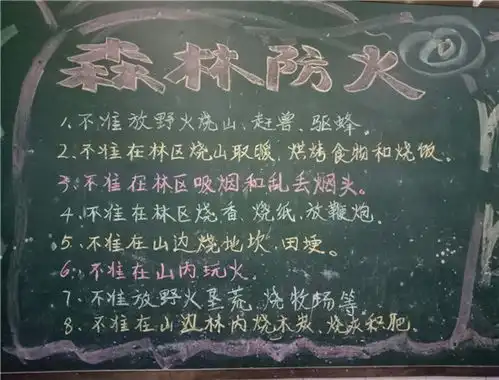 森林防火
1、不准放野火烧山、赶兽、驱蜂。
2、不准在林区烧山取暖、烘烤食物和烧饭。
3、不准在林区吸烟和乱丢烟头。
4、不准在林区烧香、烧纸、放鞭炮。
5、不准在山边烧地坎、田埂。
6、不准在山内玩火。
7、不准放野火垦荒、烧牧场等。
8、不准在山边林内烧木炭、烧灰积肥。